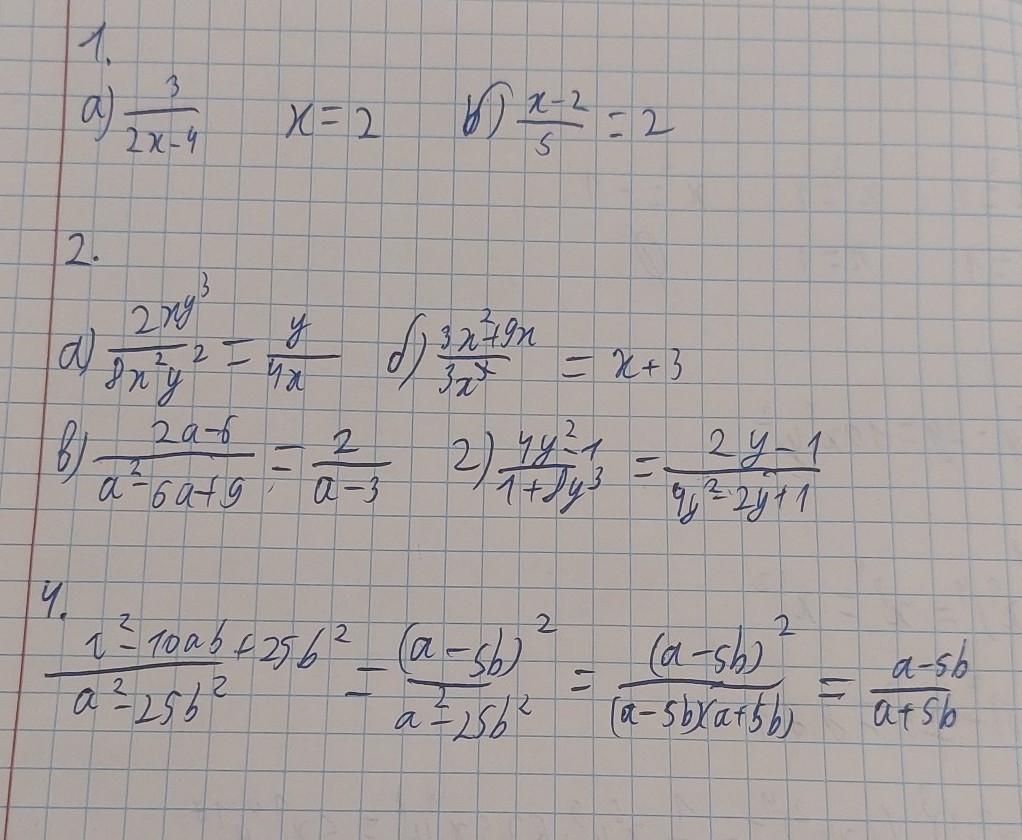 1.
а) 3/(2x-4) x=2 б) (x-2)/5 = 2
2.
а) 2xy³/(8x²y²) = y/(4x) б) (3x²+9x)/(3x) = x+3
в) (2a-6)/(a²-6a+9) = 2/(a-3) г) (4y²-1)/(1+8y³) = (2y-1)/(4y²-2y+1)
4.
(a²-10ab+25b²)/(a²-25b²) = (a-5b)²/(a²-25b²) = (a-5b)²/((a-5b)(a+5b)) = (a-5b)/(a+5b)